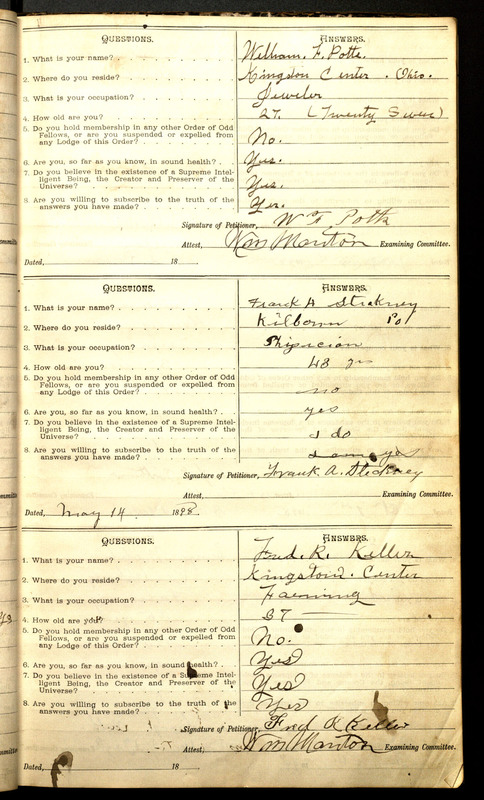 QUESTIONS. ANSWERS.
1. What is your name? William. F. Potts.
2. Where do you reside? Kingston Center. Ohio.
3. What is your occupation? Jeweler
4. How old are you? 27. (Twenty Seven)
5. Do you hold membership in any other Order of Odd
Fellows, or are you suspended or expelled from
any Lodge of this Order? No.
6. Are you, so far as you know, in sound health? Yes.
7. Do you believe in the existence of a Supreme Intel-
ligent Being, the Creator and Preserver of the
Universe? Yes.
8. Are you willing to subscribe to the truth of the
answers you have made? Yes.
Signature of Petitioner, W F Potts
Attest, Wm Manton Examining Committee.
Dated, 18
QUESTIONS. ANSWERS.
1. What is your name? Frank A Stickney
2. Where do you reside? Kilbourn Po
3. What is your occupation? Physician
4. How old are you? 48 yrs
5. Do you hold membership in any other Order of Odd
Fellows, or are you suspended or expelled from
any Lodge of this Order? no
6. Are you, so far as you know, in sound health? yes
7. Do you believe in the existence of a Supreme Intel-
ligent Being, the Creator and Preserver of the
Universe? I do
8. Are you willing to subscribe to the truth of the
answers you have made? I am yes
Signature of Petitioner, Frank. A. Stickney
Attest, Examining Committee.
Dated, May 14 1898.
QUESTIONS. ANSWERS.
1. What is your name? Fred. R. Keller
2. Where do you reside? Kingston. Center
3. What is your occupation? Farming
4. How old are you? 37
5. Do you hold membership in any other Order of Odd
Fellows, or are you suspended or expelled from
any Lodge of this Order? No.
6. Are you, so far as you know, in sound health? Yes
7. Do you believe in the existence of a Supreme Intel-
ligent Being, the Creator and Preserver of the
Universe? Yes
8. Are you willing to subscribe to the truth of the
answers you have made? Yes
Signature of Petitioner, Fred R Keller
Attest, Wm Manton Examining Committee.
Dated, 18